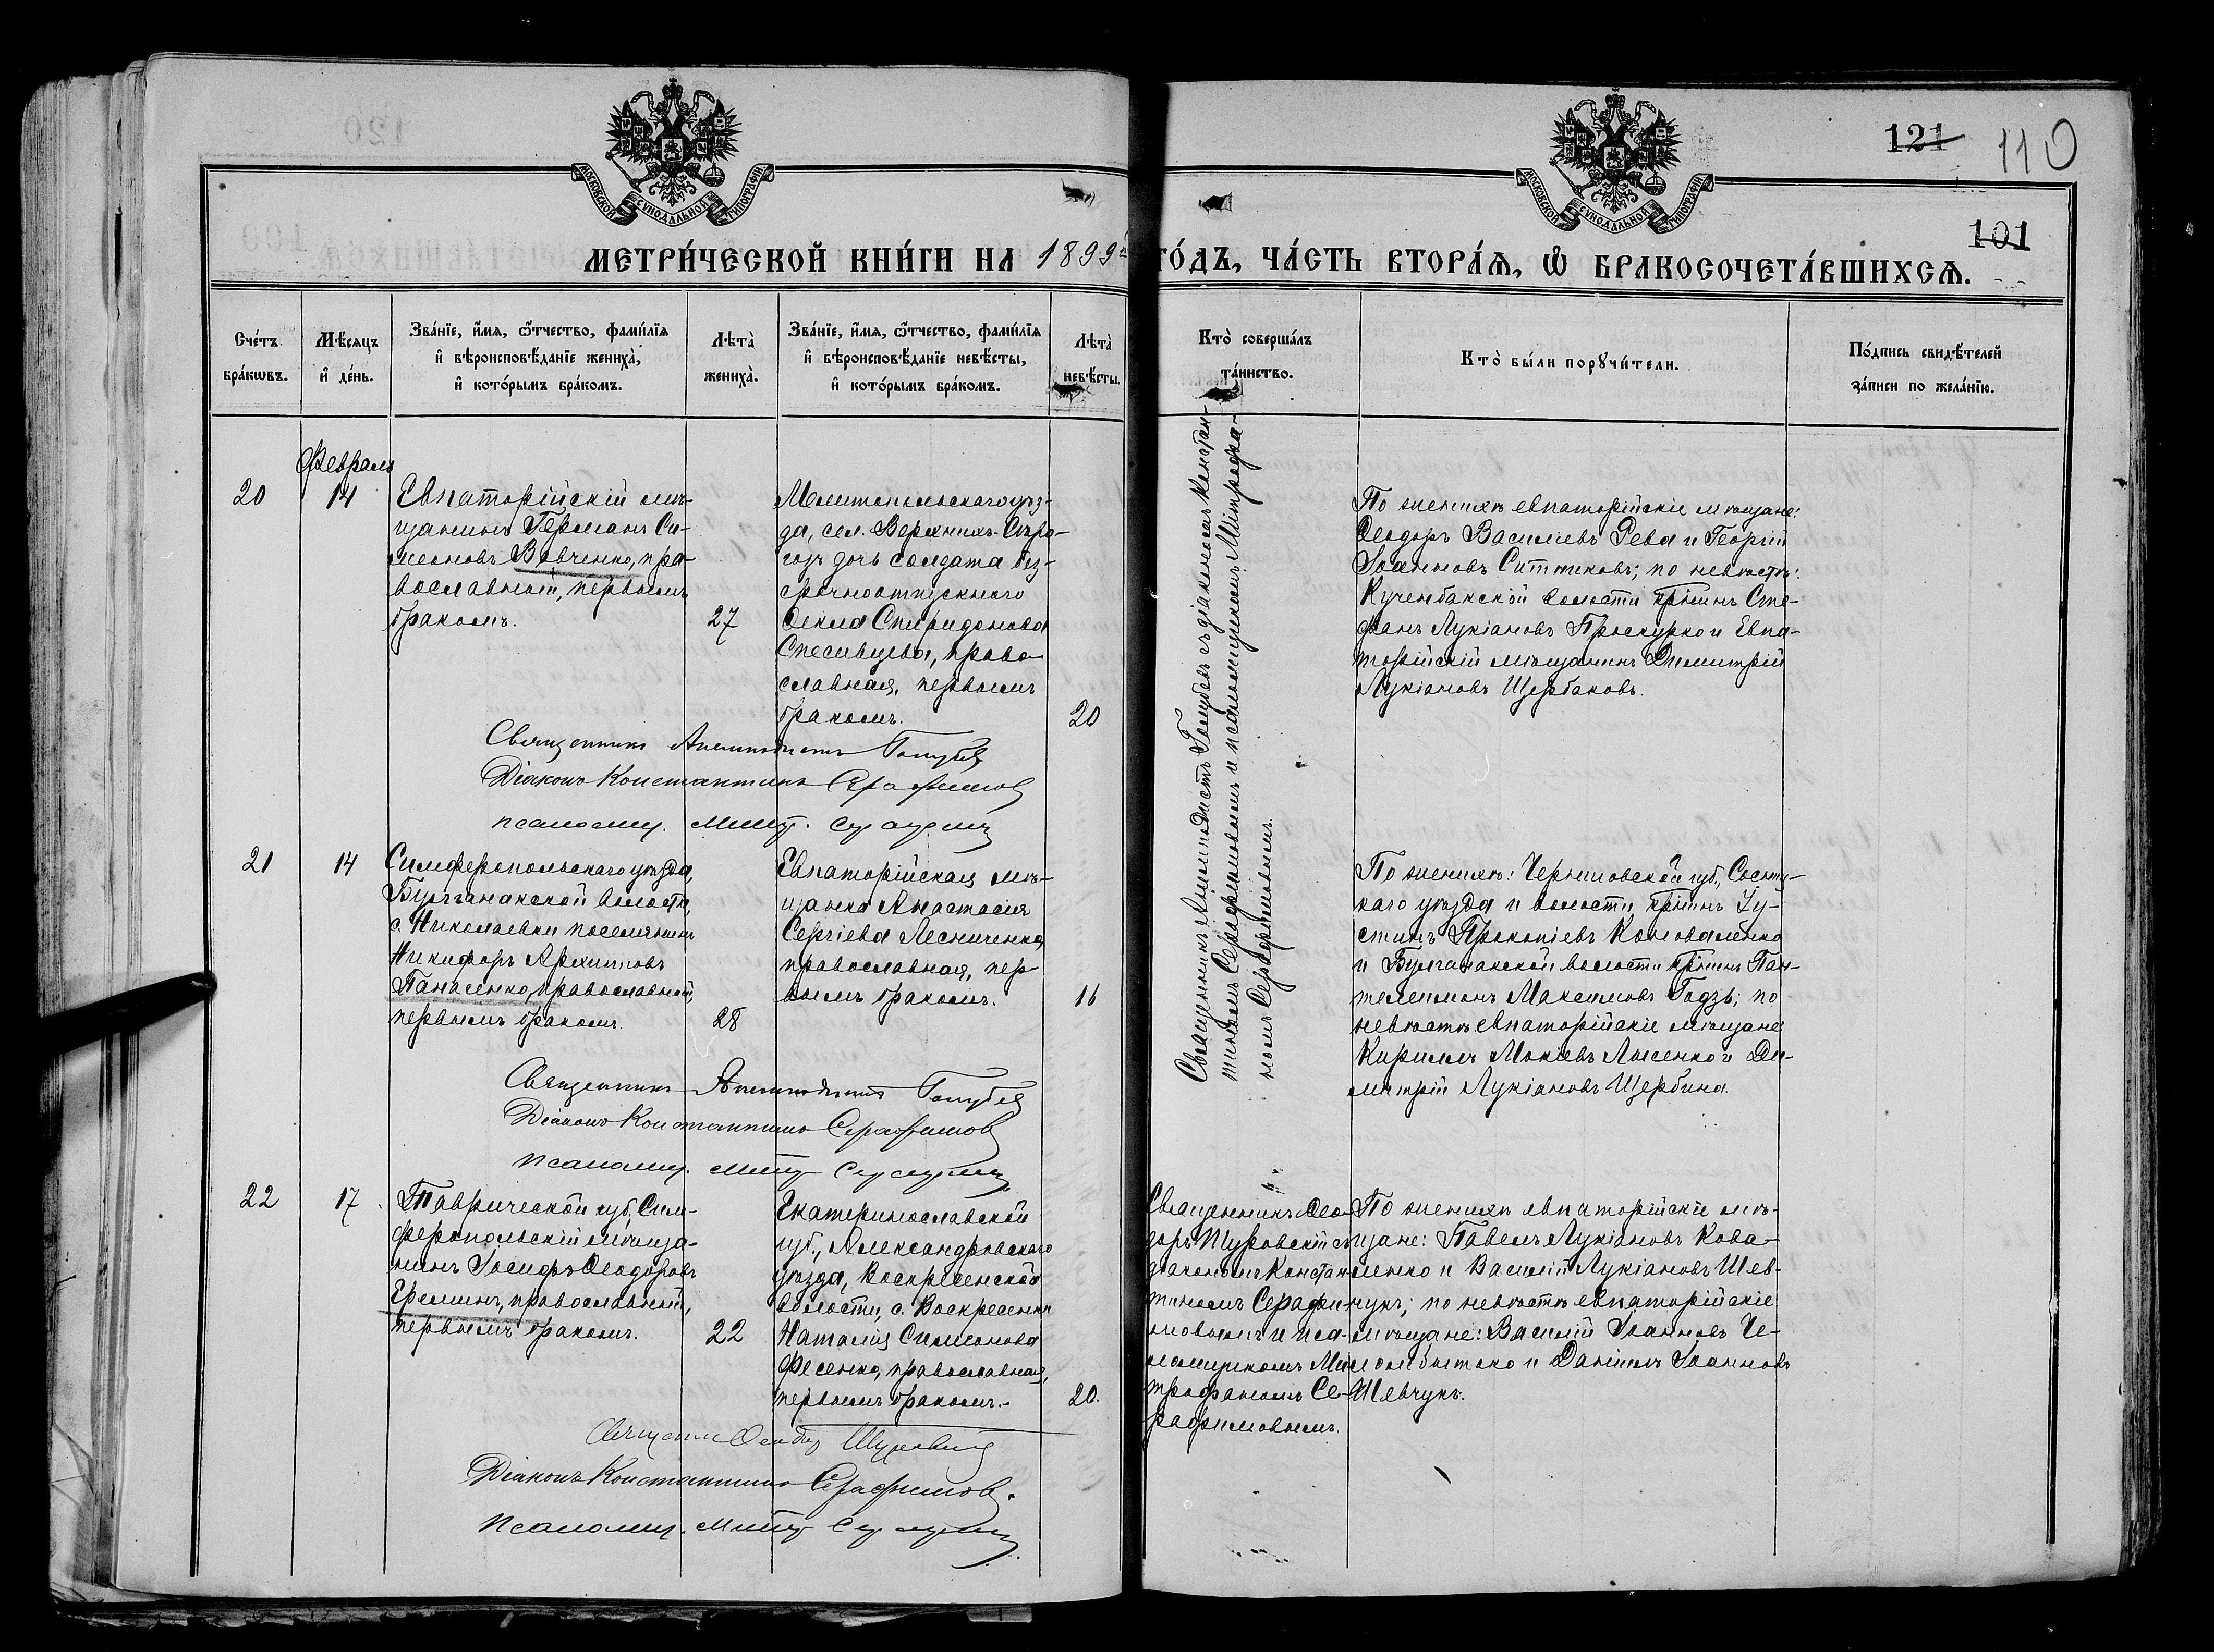 121 110
101
МОСКОВСКОЙ СѴНОДАЛЬНОЙ ТИПОГРАФІИ
МОСКОВСКОЙ СѴНОДАЛЬНОЙ ТИПОГРАФІИ
МЕТРИ́ЧЕСКОЙ КНИ́ГИ НА 1899й ГО́ДЪ, ЧА́СТЬ ВТОРА́Ѧ, Ѡ҆ БРАКОСОЧЕТА́ВШИХСѦ.
Сче́тъ бра́кѡвъ.
Мѣ́сяцъ и҆ де́нь.
Зва́нїе, и҆́мя, ѻ҆́тчество, фами́лїя
и҆ вѣроисповѣ́данїе жениха̀,
и҆ кото́рымъ бра́комъ.
Лѣта̀ жениха̀.
Зва́нїе, и҆́мя, ѻ҆́тчество, фами́лїя
и҆ вѣроисповѣ́данїе невѣ́сты,
и҆ кото́рымъ бра́комъ.
Лѣта̀ невѣ́сты.
Кто̀ соверша́лъ
та́инство.
Кто̀ бы́ли порꙋчи́тели.
По́дпись свидѣ́телей
за́писи по жела́нїю.
Февраль
20
14
Евпаторійскій мѣ-
щанинъ Германъ Си-
меоновъ Вовченко, пра-
вославный, первымъ
бракомъ.
27
Мелитопольскаго уѣз-
да, сел. Верхнихъ-Сѣро-
гозъ дочь солдата без-
срочноотпускного
Ѳекла Спиридонова
Спесивцева, право-
славная, первымъ
бракомъ.
20
Священникъ Анемподистъ Голубевъ съ діакономъ Констан-
тиномъ Серафимовымъ и псаломщикомъ Митрофа-
номъ Серафимовымъ.
По женихѣ евпаторійскіе мѣщане:
Ѳеодоръ Василіевъ Рева и Георгій
Іоанновъ Ситниковъ; по невѣстѣ:
волости кр-нинъ Сте-
фанъ Лукіановъ Проскурко и Евпа-
торійскій мѣщанинъ Димитрій
Лукіановъ Щербаковъ.
Священникъ Анемподистъ Голубевъ
Діаконъ Константинъ Серафимовъ
псаломщ. Митр. Серафим
21
14
Симферопольскаго уѣзда,
Булганакской волости,
с. Николаевки поселянинъ
Никифоръ Архиповъ
Панасенко, православный,
первымъ бракомъ.
28
Евпаторійская мѣ-
щанка Анастасія
Сергіева Лесниченко,
православная, пер-
вымъ бракомъ.
16
По женихѣ: Черниговской губ., Сосниц-
каго уѣзда и волости кр-нинъ Іу-
стинъ Прокопіевъ Коноваленко
и Булганакской волости кр-нинъ Пан-
телеимонъ Максимовъ Годзь; по
невѣстѣ евпаторійскіе мѣщане
Кириллъ Мокіевъ Лысенко и Ди-
митрій Лукіановъ Щербина.
Священникъ Анемподистъ Голубевъ
Діаконъ Константинъ Серафимовъ
псаломщ. Митр. Серафим
22
17
Таврической губ., Сим-
феропольскій мѣща-
нинъ Іосифъ Ѳеодоровъ
Ереминъ, православный,
первымъ бракомъ.
22
Екатеринославской
губ., Александровскаго
уѣзда, Воскресенской
волости, с. Воскресенки
Наталія Симеонова
Фесенко, православная,
первымъ бракомъ.
20.
Священникъ Ѳео-
доръ Шуровскій съ
діакономъ Констан-
тиномъ Серафи-
мовымъ и пса-
ломщикомъ Ми-
трофаномъ Се-
рафимовымъ.
По женихѣ евпаторійскіе мѣ-
щане: Павелъ Лукіановъ Кова-
ленко и Василій Лукіановъ Шев-
чукъ; по невѣстѣ евпаторійскіе
мѣщане: Василій Іоанновъ Че-
и Даніилъ Іоанновъ
Шевчукъ.
Священникъ Ѳеодоръ Шуровскій
Діаконъ Константинъ Серафимовъ.
Псаломщ. Митр. Серафим